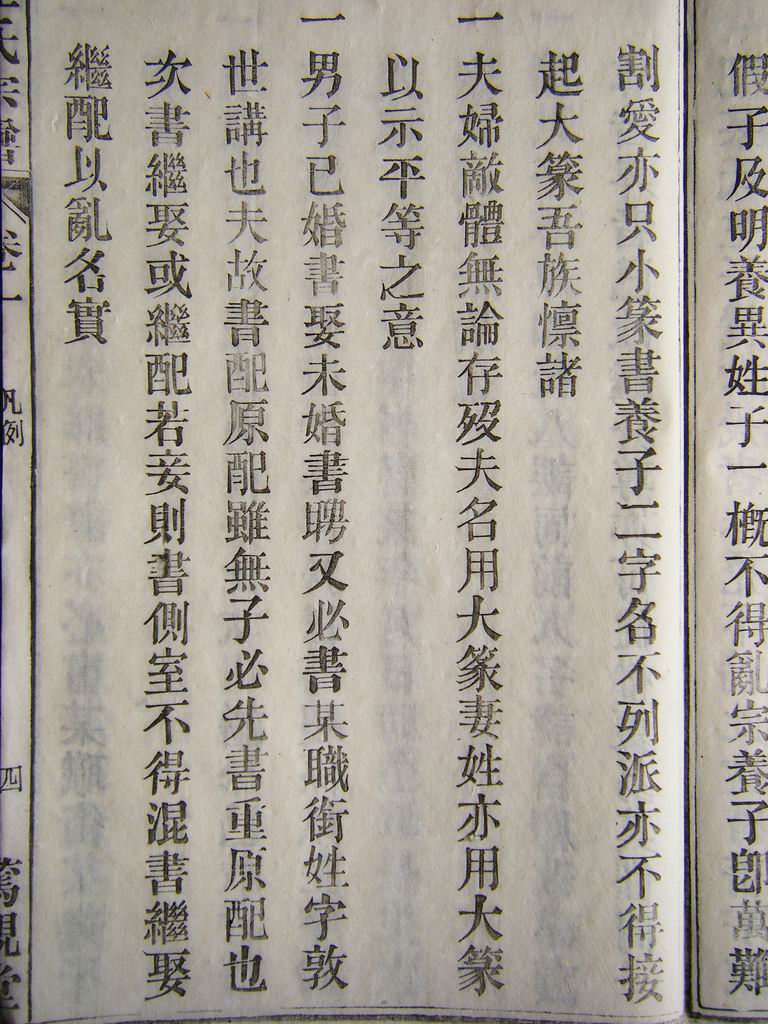 假子及明養異姓子一概不得亂宗養子卽萬難
割愛亦只小篆書養子二字名不列派亦不得接
起大篆吾族懍諸
一夫婦敵體無論存歿夫名用大篆妻姓亦用大篆
以示平等之意
一男子已婚書娶未婚書聘又必書某職銜姓字敦
世講也夫故書配原配雖無子必先書重原配也
次書繼娶或繼配若妾則書側室不得混書繼娶
繼配以亂名實
氏宗譜
卷一
凡例
四